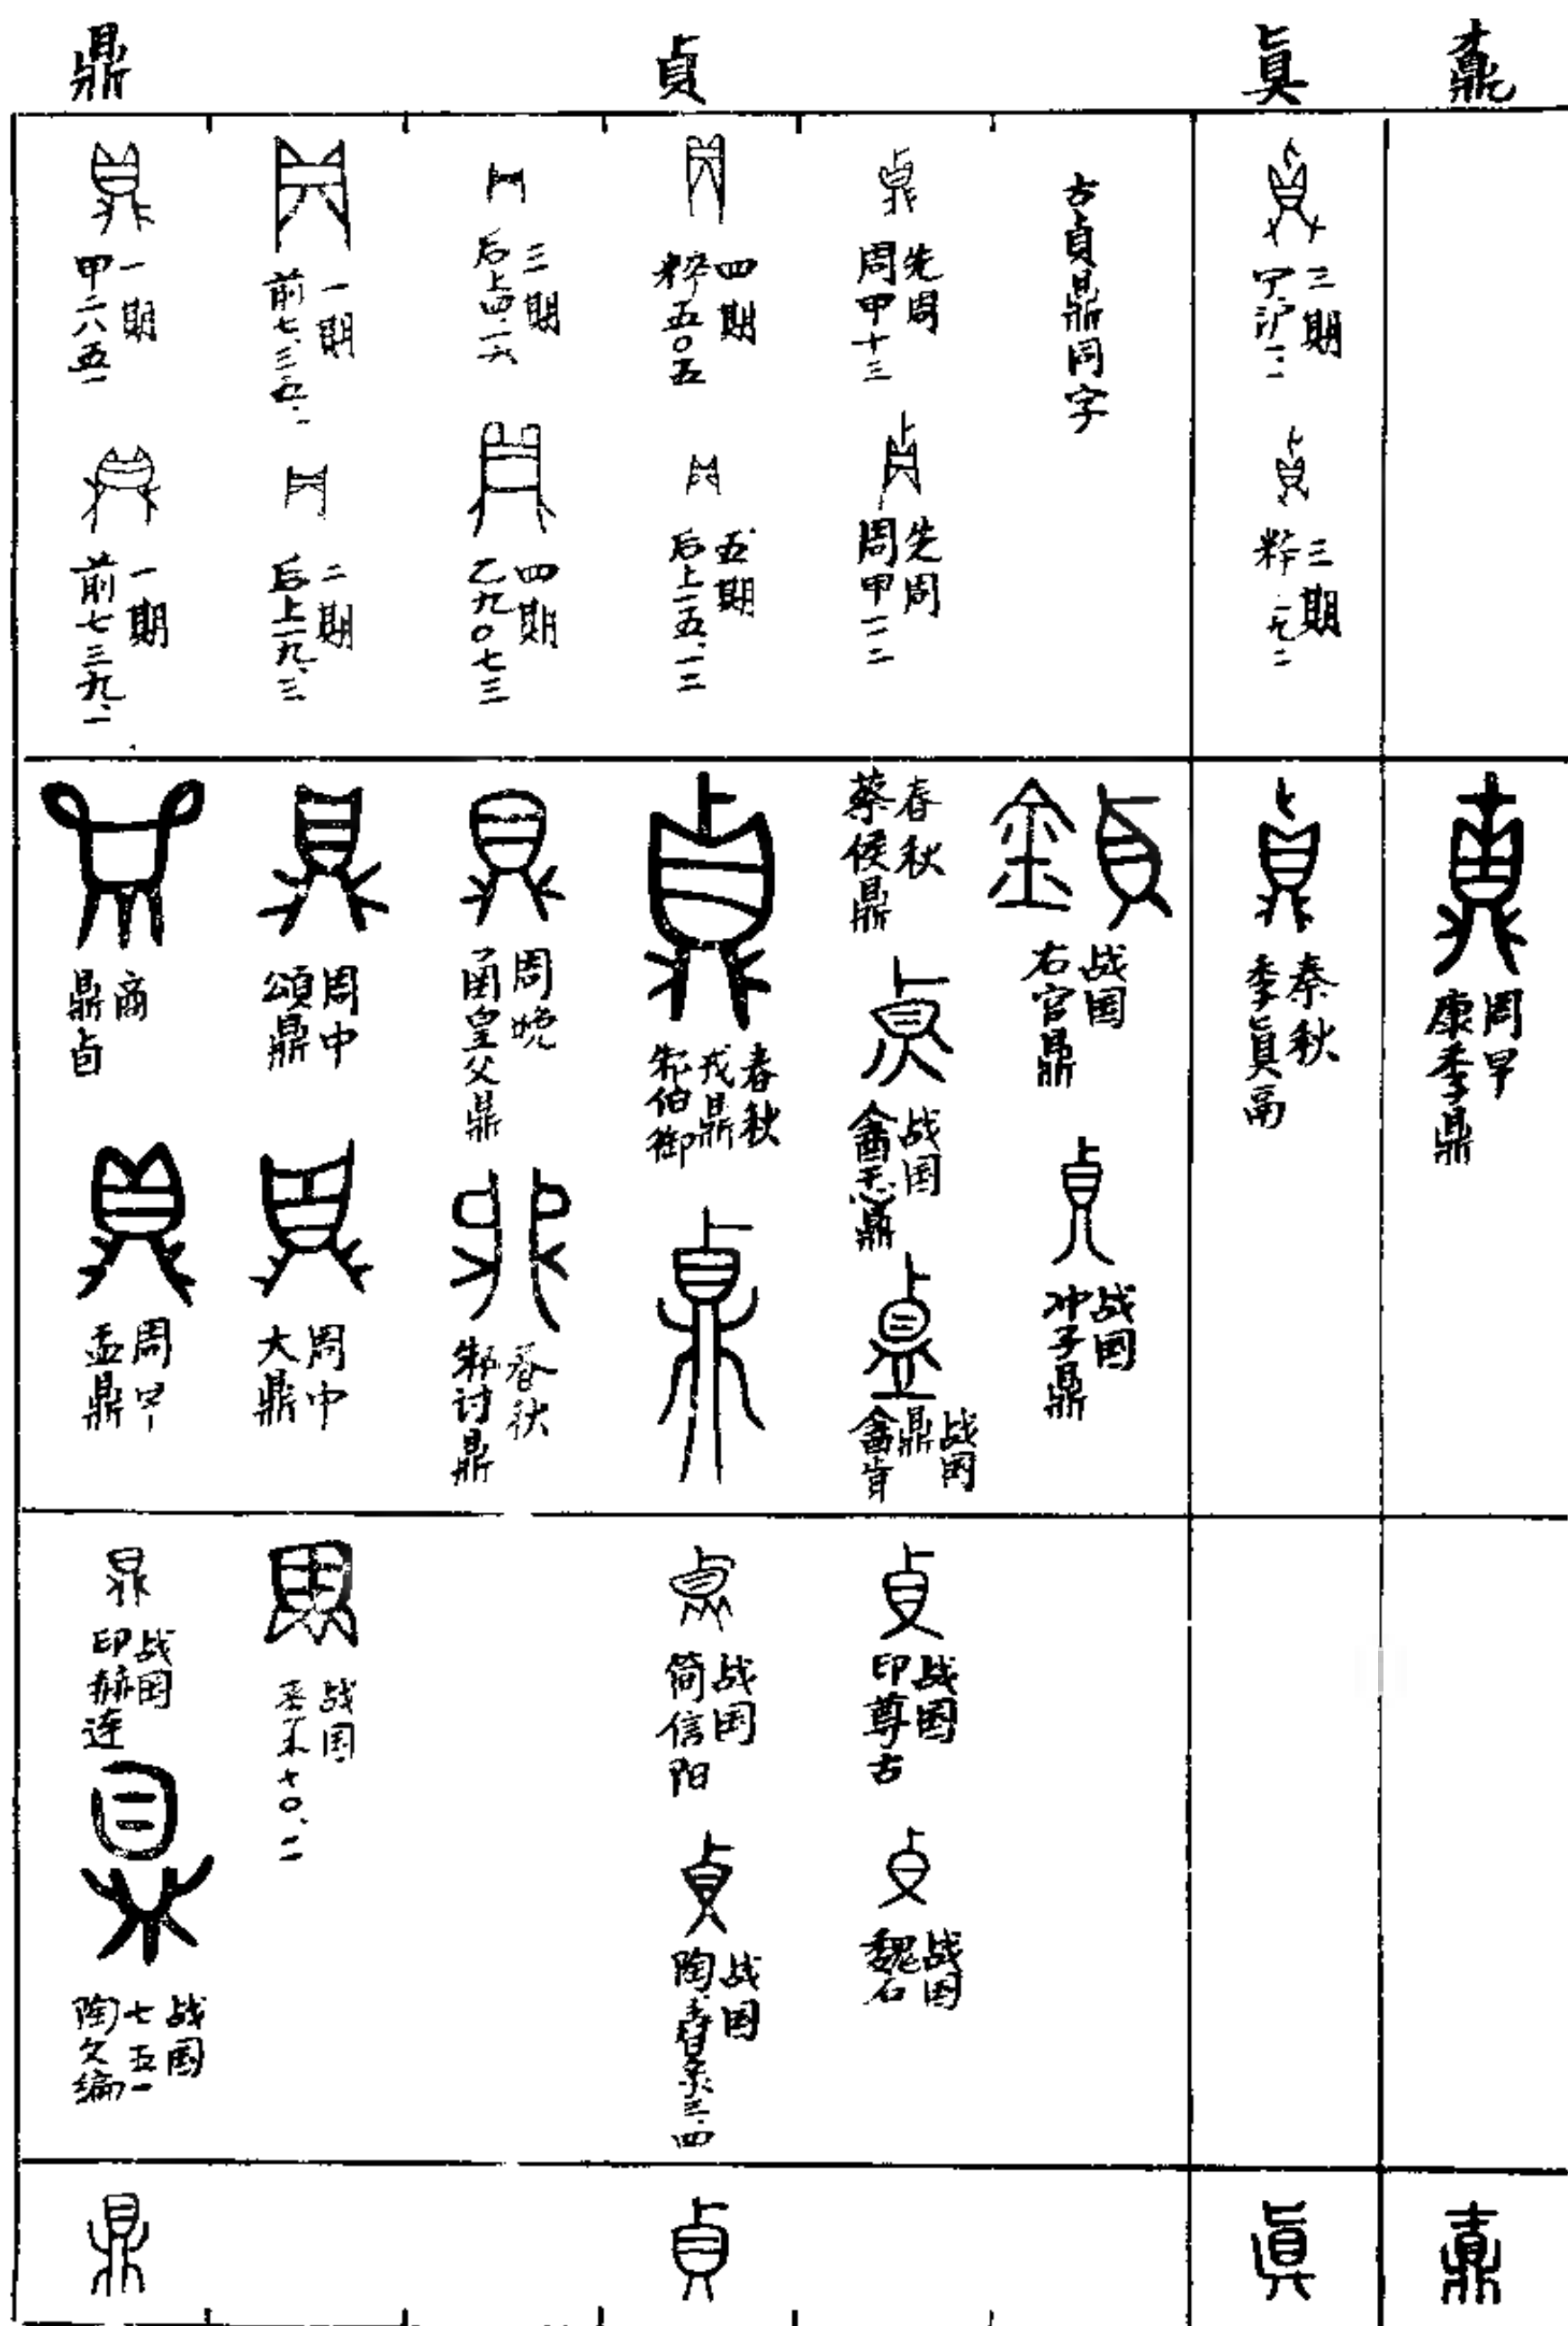 鼎 貞 眞 鼒
一期 甲二八五一
一期 前七.三九.一
一期
二期 后上二九.三
三期 后上四.一六
四期 乙九〇七三
四期 粹五〇五
五期 后上一五.一二
先周 周甲十三
先周 周甲一二
古貞鼎同字
三期
三期 粹一九二
商 鼎卣
周早 盂鼎
周中 頌鼎
周中 大鼎
周晚 函皇父鼎
春秋 郑讨鼎
春秋 戎鼎 邾伯御
春秋 蔡侯鼎
战国 酓忎鼎
战国 鼎 酓肯
战国 右官鼎
战国 冲子鼎
春秋 季眞鬲
周早 康季鼎
战国 印赫连
战国 七五一 陶文编
战国
战国 简信阳
战国 陶
战国 印尊古
战国 魏石
鼎 貞 眞 鼒